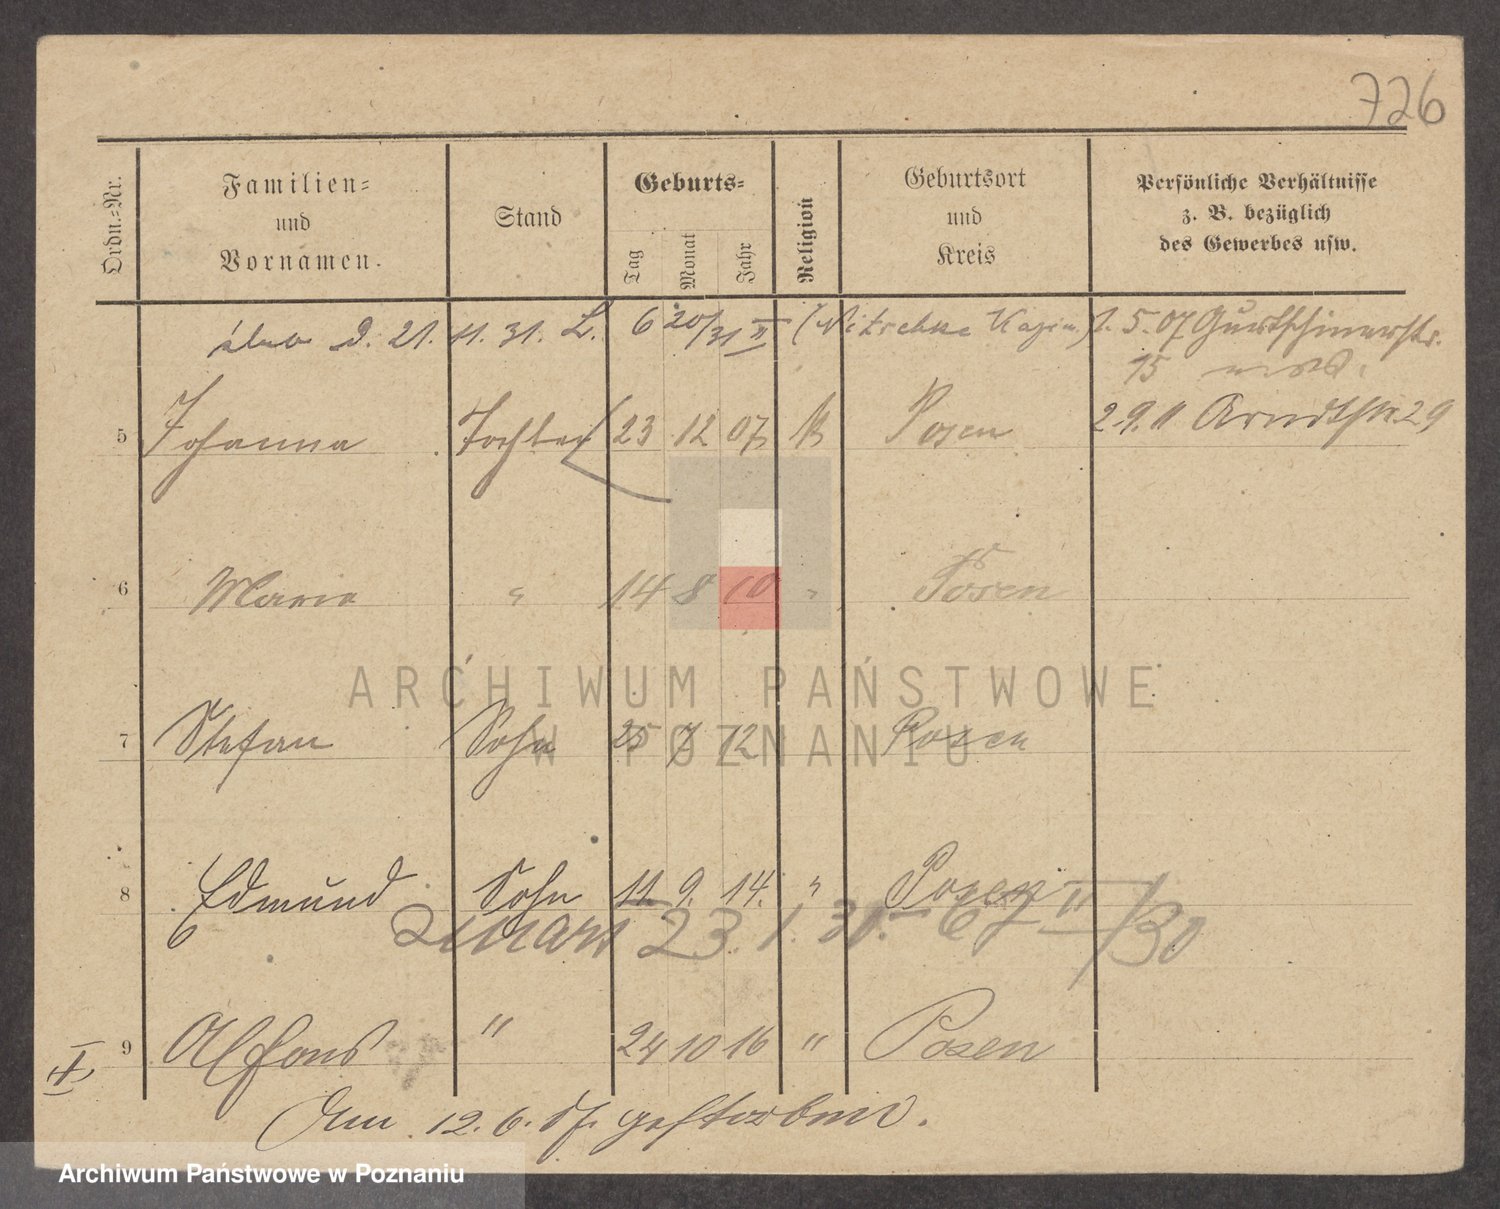 726
Ordn.-Nr.
Familien-
und
Vornamen.
Stand
Geburts-
Tag
Monat
Jahr
Religion
Geburtsort
und
Kreis
Persönliche Verhältnisse
z. B. bezüglich
des Gewerbes usw.
ślub d. 21. 11. 31. L. 6 20/31 II (Nitschke Kazim.) 1. 5. 07
15
5 Johanna Tochter 23 12 07 Posen 29. 11 Arndtstr. 29
6 Maria " 14 8 10 " Posen
ARCHIWUM PAŃSTWOWE
W POZNANIU
7 Stefan Sohn 25 7 12 Posen
8 Edmund Sohn 11. 9. 14. " Posen
23. 1. 30. - 67 II/30
9 Alfons " 24 10 16 " Posen
Am 12. 6. 17. gestorben.
Archiwum Państwowe w Poznaniu